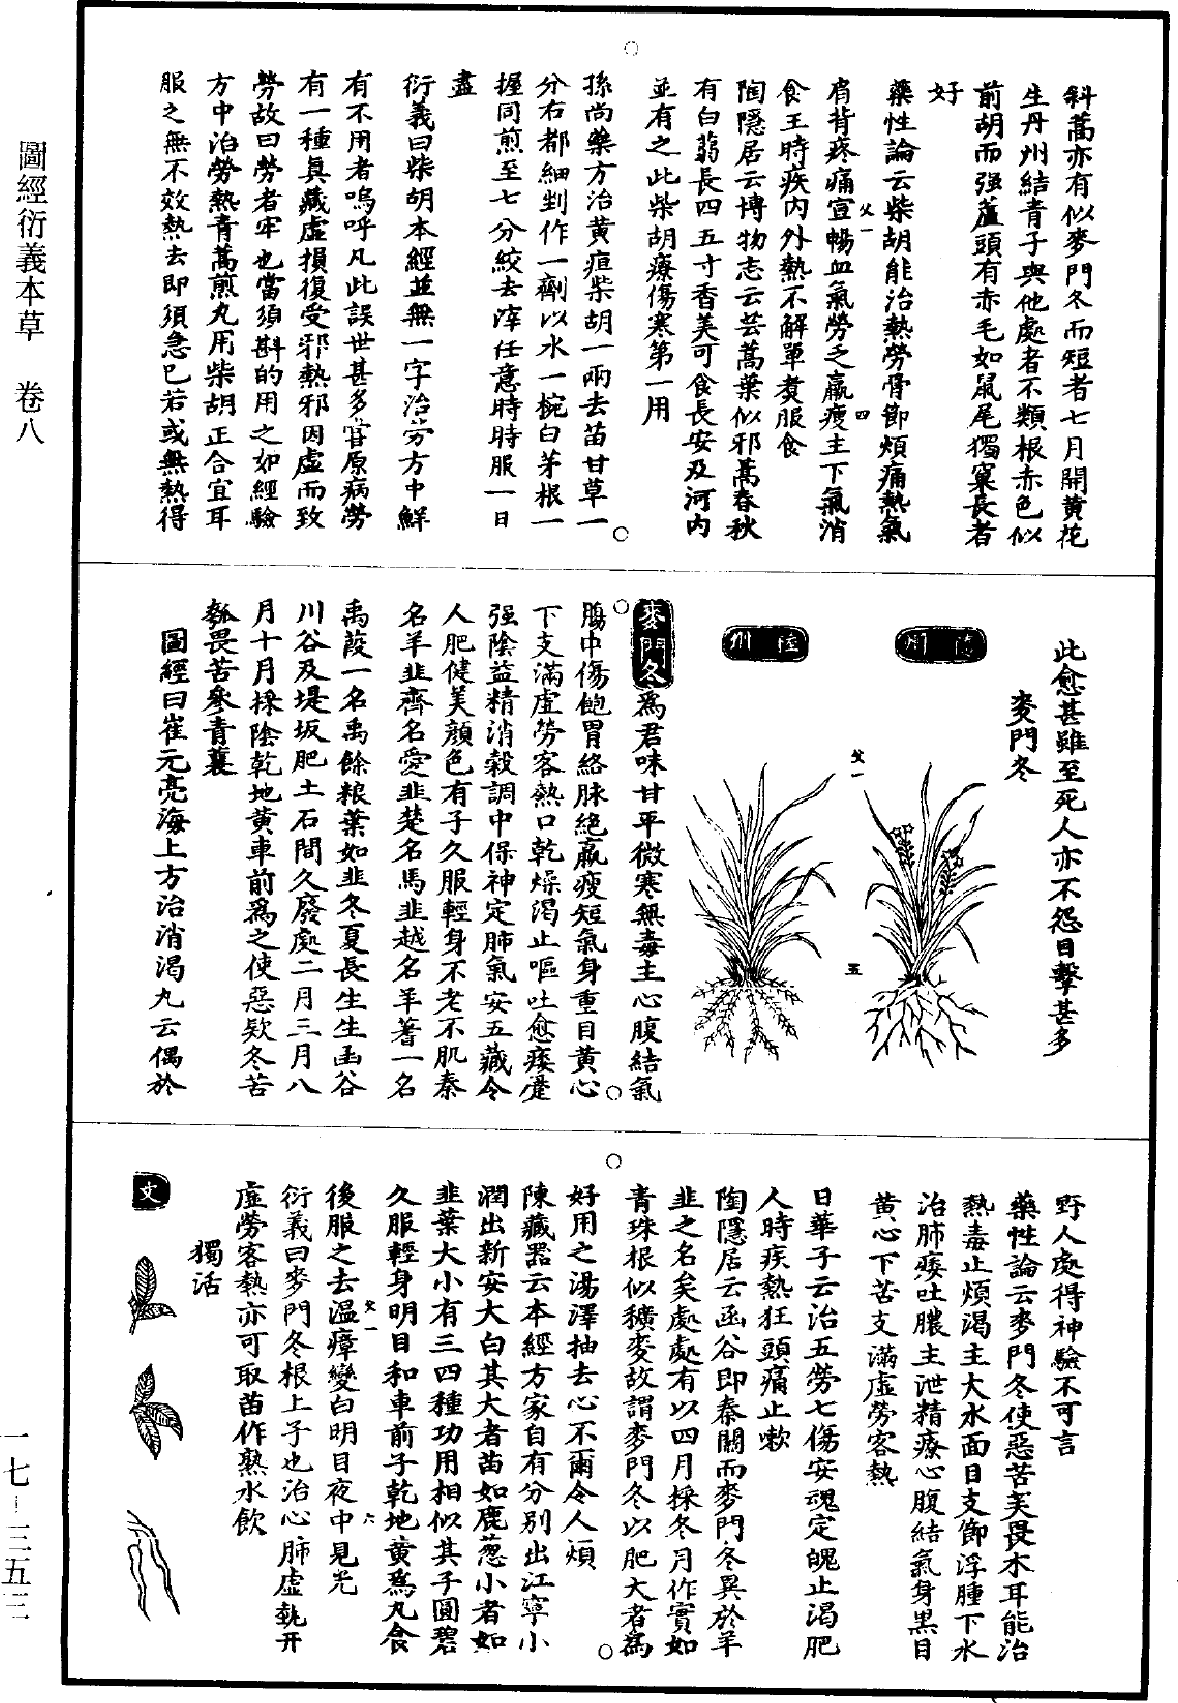 圖經衍義本草　卷八
斜蒿亦有似麥門冬而短者七月開黃花
生丹州結青子與他處者不類根赤色似
前胡而强蘆頭有赤毛如鼠尾獨窠長者
好
藥性論云柴胡能治熱勞骨節煩痛熱氣
肩背疼痛宣暢血氣勞乏羸瘦主下氣消
食主時疾內外熱不解單煑服食
陶隱居云博物志云芸蒿葉似邪蒿春秋
有白蒻長四五寸香美可食長安及河內
並有之此柴胡療傷寒第一用
孫尚藥方治黃疸柴胡一兩去苗甘草一
分右都細剉作一劑以水一椀白茅根一
握同煎至七分絞去滓任意時時服一日
盡
衍義曰柴胡本經並無一字治勞方中鮮
有不用者嗚呼凡此誤世甚多甞原病勞
有一種真藏虛損復受邪熱邪因虛而致
勞故曰勞者牢也當須斟的用之如經驗
方中治勞熱青蒿煎丸用柴胡正合宜耳
服之無不效熱去即須急已若或無熱得
此愈甚雖至死人亦不怨目擊甚多
麥門冬
睦州
麥門冬爲君味甘平微寒無毒主心腹結氣
腸中傷飽胃絡脉絶羸瘦短氣身重目黃心
下支滿虛勞客熱口乾燥渴止嘔吐愈痿蹷
强陰益精消穀調中保神定肺氣安五藏令
人肥健美顔色有子久服輕身不老不肌秦
名羊韭齊名愛韭楚名馬韭越名羊蓍一名
禹葭一名禹餘粮葉如韭冬夏長生生函谷
川谷及堤坂肥土石間久廢處二月三月八
月十月採陰乾地黃車前爲之使惡欵冬苦
瓠畏苦參青蘘
圖經曰崔元亮海上方治消渴丸云偶於
野人處得神驗不可言
藥性論云麥門冬使惡苦芙畏木耳能治
熱毒止煩渴主大水面目支節浮腫下水
治肺痿吐膿主泄精療心腹結氣身黑目
黃心下苦支滿虛勞客熱
日華子云治五勞七傷安魂定魄止渴肥
人時疾熱狂頭痛止嗽
陶隱居云函谷即秦關而麥門冬異於羊
韭之名矣處處有以四月採冬月作實如
青珠根似穬麥故謂麥門冬以肥大者爲
好用之湯澤抽去心不爾令人煩
陳藏器云本經方家自有分別出江寧小
潤出新安大白其大者苗如鹿葱小者如
韭葉大小有三四種功用相似其子圓碧
久服輕身明目和車前子乾地黃爲丸食
後服之去温瘴變白明目夜中見光
衍義曰麥門冬根上子也治心肺虛熱并
虛勞客熱亦可取苗作熟水飲
獨活
文
一七—三五三